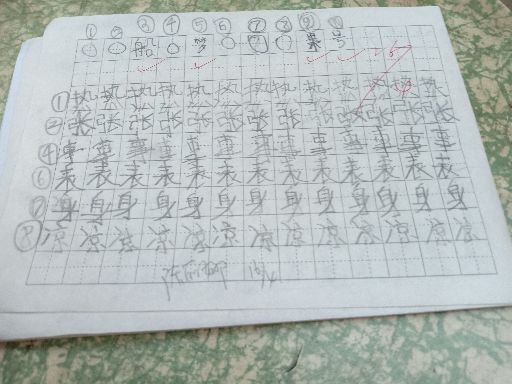 ① ② ③ ④ ⑤ ⑥ ⑦ ⑧ ⑨ ⑩
○ ○ 船 ○ 梦 ○ ○ ○ 桌 号
① 执 执 执 执 执 执 执 执 执 执 执 执 执
② 张 张 张 张 张 张 张 张 张 张 张 张 张
④ 事 事 事 事 事 事 事 事 事 事 事 事 事
⑥ 表 表 表 表 表 表 表 表 表 表 表 表 表
⑦ 身 身 身 身 身 身 身 身 身 身 身 身 身
⑧ 凉 凉 凉 凉 凉 凉 凉 凉 凉 凉 凉 凉 凉